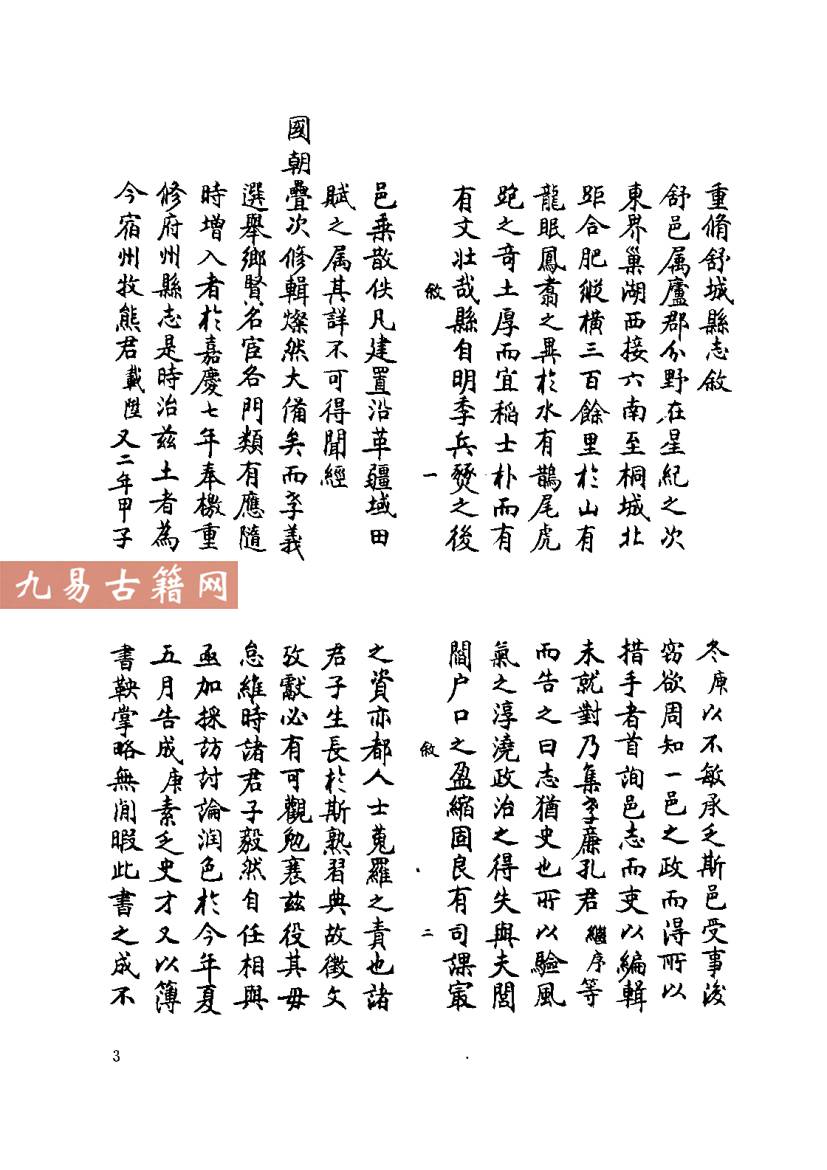 重脩舒城縣志敘
舒邑属廬郡分野在星紀之次
東界巢湖西接六南至桐城北
距合肥縱橫三百餘里於山有
龍眠鳳翥之異於水有鵲尾虎
跑之奇土厚而宜稻士朴而有
有文壯哉縣自明季兵燹之後
敘 一
邑乗散佚凡建置沿革疆域田
賦之属其詳不可得聞經
國朝疊次修輯燦然大備矣而孝義
選舉鄉賢名宦各門類有應隨
時增入者於嘉慶七年奉檄重
修府州縣志是時治兹土者為
今宿州牧熊君載陞又二年甲子
冬庚以不敏承乏斯邑受事後
窃欲周知一邑之政而得所以
措手者首詢邑志而吏以編輯
未就對乃集孝廉孔君繼序等
而告之曰志猶史也所以驗風
氣之淳澆政治之得失與夫閭
閻户口之盈縮固良有司課宷
敘 二
之資亦都人士蒐羅之責也諸
君子生長於斯熟習典故徵文
攷獻必有可觀勉襄兹役其毋
怠維時諸君子毅然自任相與
亟加採訪討論润色於今年夏
五月告成庚素乏史才又以簿
書鞅掌略無閒暇此書之成不
九易古籍网
3